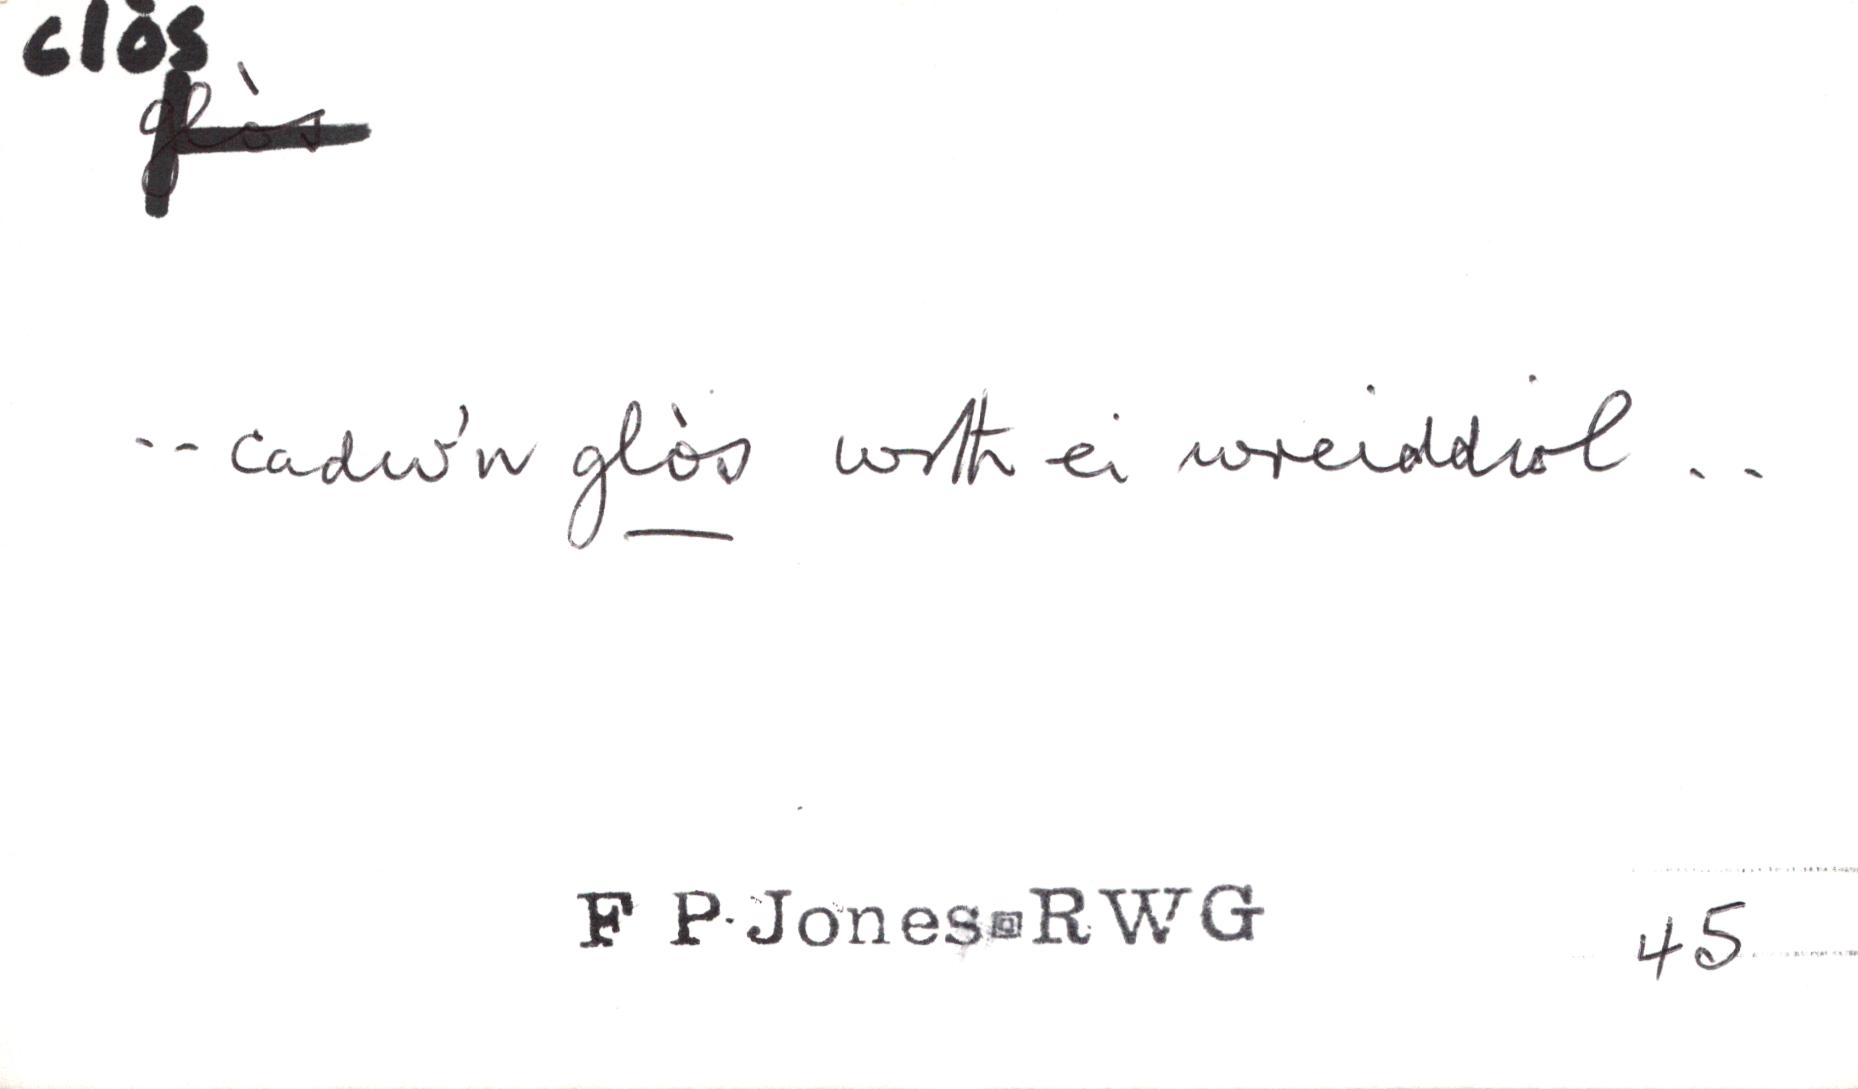 clòs
glòs
.. cadw'n glòs wrth ei wreiddiol ..
F P. Jones RWG
45